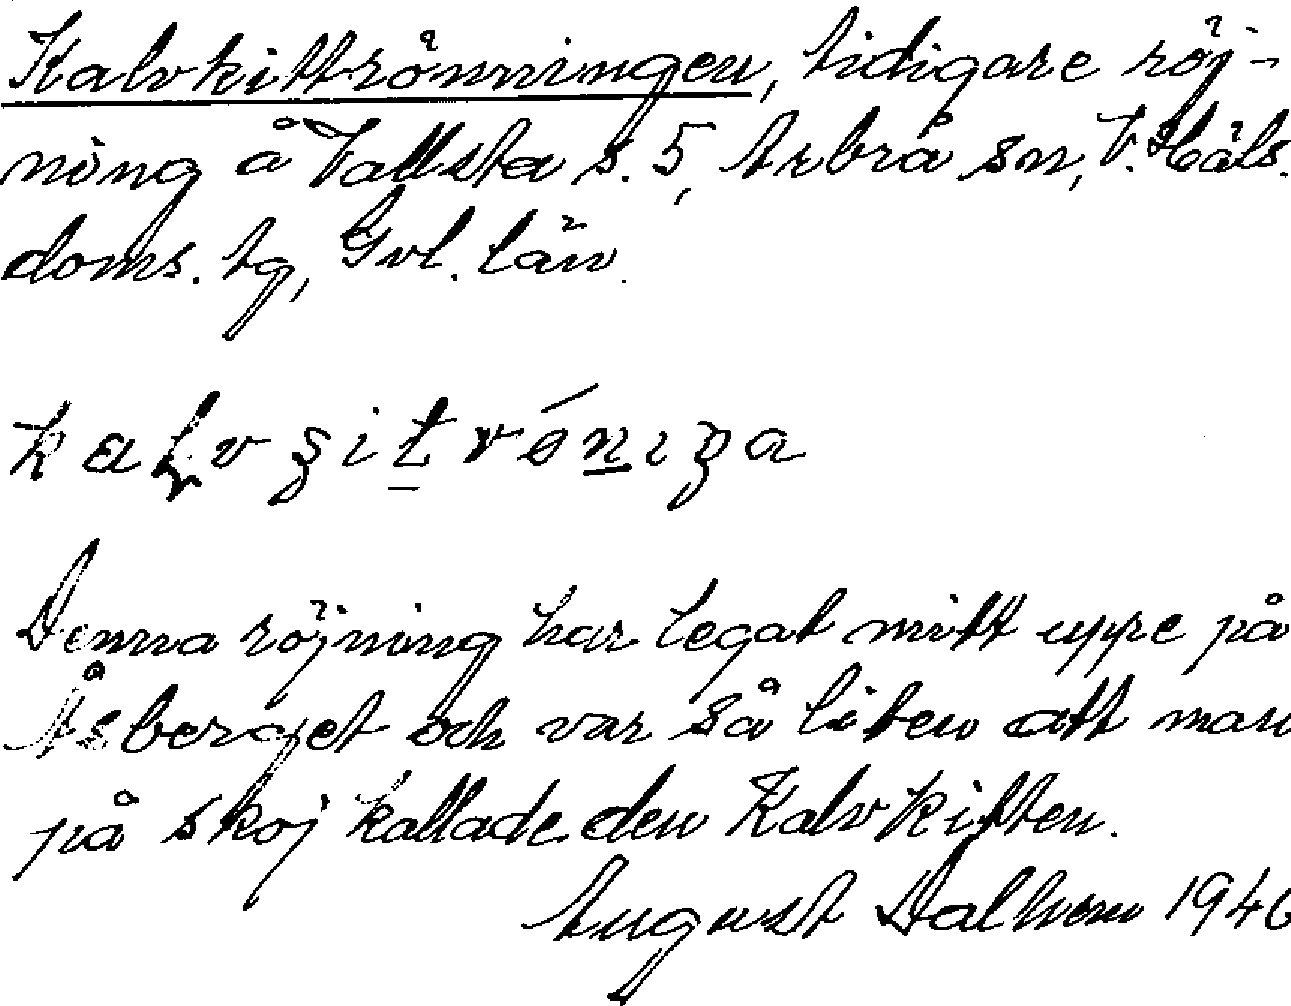 Kalvkittrönningen, tidigare röj-
ning å Vallsta s. 5, Arbrå sn, V. Häls.
doms. tg, Gvl. län.
Denna röjning har legat mitt uppe på
Åsberget och var så liten att man
på skoj kallade den Kalvkitten.
August Dalhem 1946